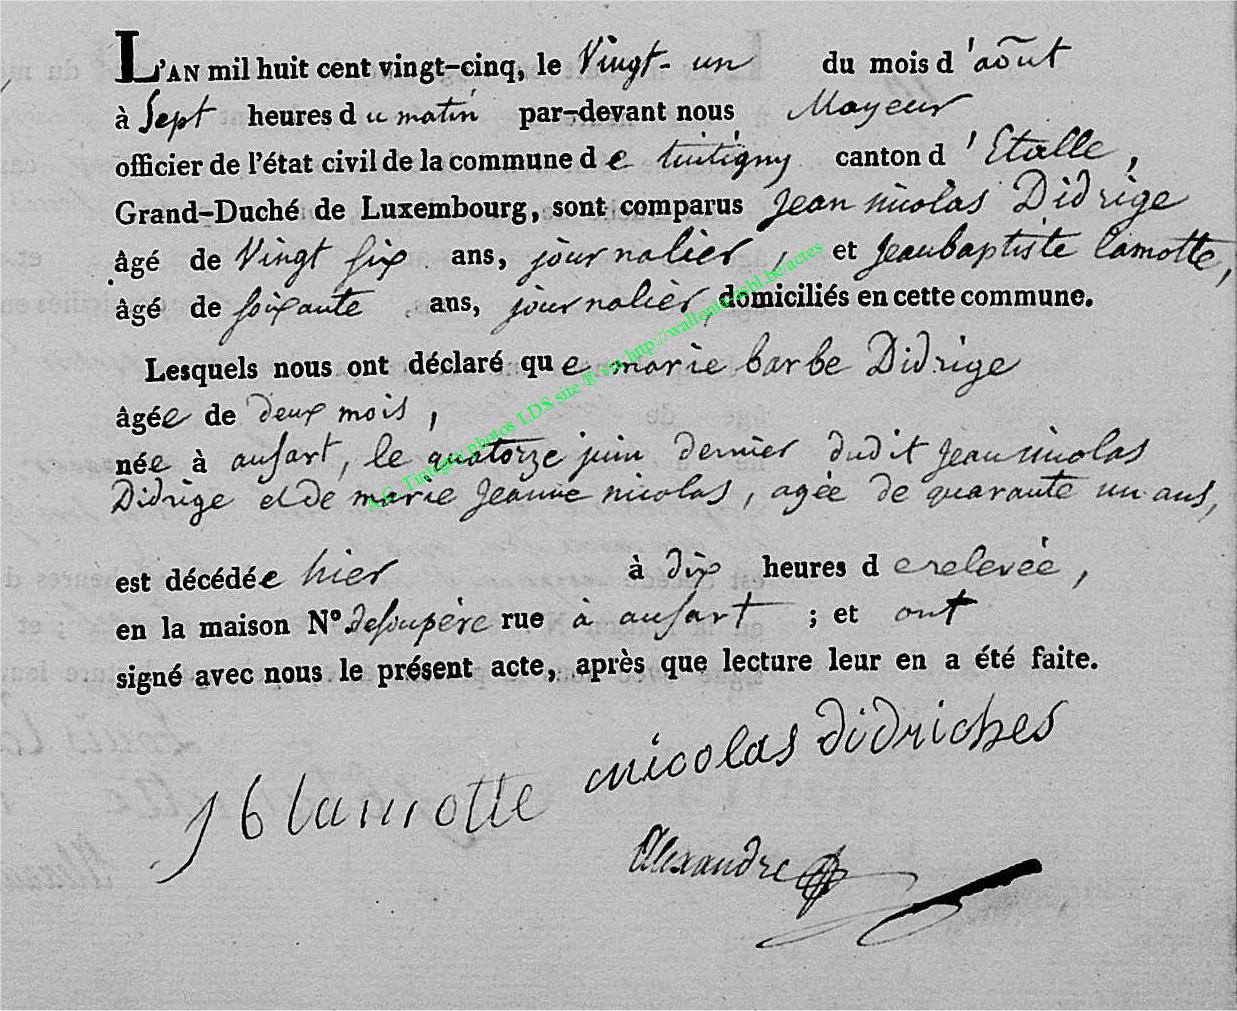 L'AN mil huit cent vingt-cinq, le Vingt-un du mois d'août
à Sept heures du matin par-devant nous Mayeur
officier de l'état civil de la commune de tintigny canton d'Etalle,
Grand-Duché de Luxembourg, sont comparus Jean nicolas Didrige
âgé de Vingt six ans, journalier, et Jeanbaptiste Lamotte,
âgé de soixante ans, journalier, domiciliés en cette commune.
Lesquels nous ont déclaré que marie barbe Didrige
âgée de deux mois,
née à ansart, le quatorze juin dernier dudit Jean nicolas
Didrige et de marie Jeanne nicolas, agée de quarante un ans,
est décédée hier à dix heures de relevée,
en la maison N° de son père rue à ansart ; et ont
signé avec nous le présent acte, après que lecture leur en a été faite.
nicolas didriches
J b lamotte
Alexandre
A.C. Tintigny photos LDS site ® via http://wallonia-asbl.be/actes